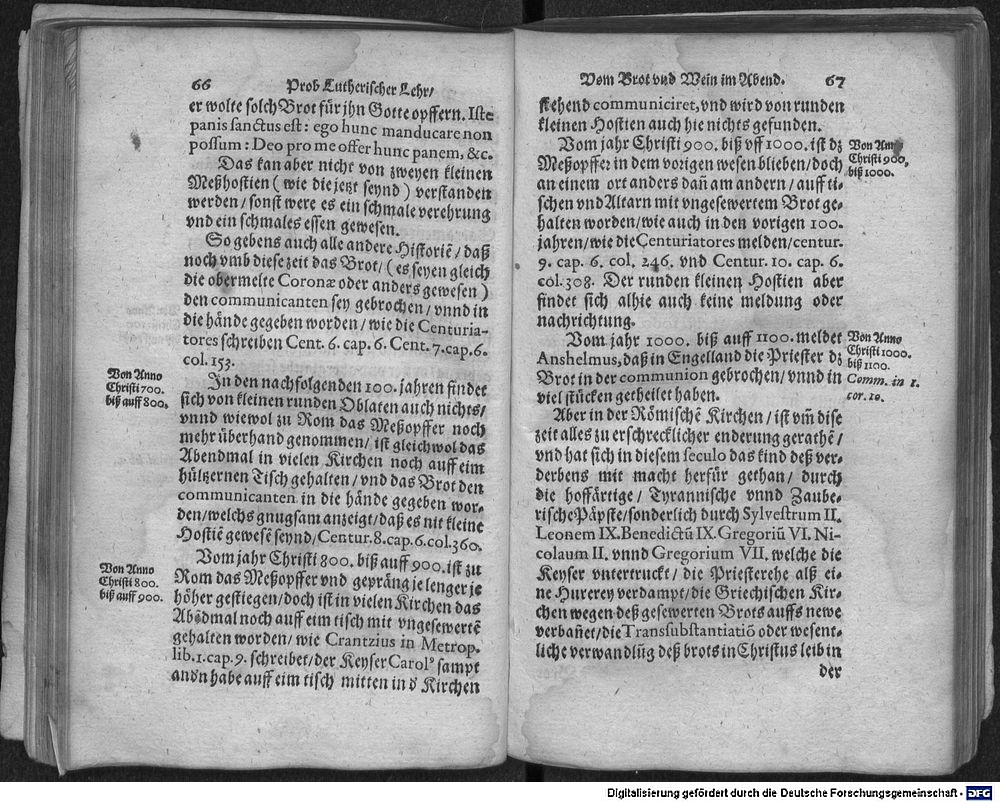 66 Prob Lutherischer Lehr/
er wolte solch Brot für jhn Gotte opffern. Iste
panis sanctus est: ego hunc manducare non
possum: Deo pro me offer hunc panem, &c.
Das kan aber nicht von zweyen kleinen
Meßhostien (wie die jetzt seynd) verstanden
werden/sonst were es ein schmale verehrung
vnd ein schmales essen gewesen.
So gebens auch alle andere Historiē/daß
noch vmb diese zeit das Brot/(es seyen gleich
die obermelte Coronæ oder anders gewesen)
den communicanten sey gebrochen/vnnd in
die hände gegeben worden/wie die Centuria-
tores schreiben Cent. 6. cap. 6. Cent. 7. cap. 6.
col. 153.
Von Anno
Christi 700.
biß auff 800.
In den nachfolgenden 100. jahren findet
sich von kleinen runden Oblaten auch nichts/
vnnd wiewol zu Rom das Meßopffer noch
mehr überhand genommen/ist gleichwol das
Abendmal in vielen Kirchen noch auff eim
hültzernen Tisch gehalten/vnd das Brot den
communicanten in die hände gegeben wor-
den/welchs gnugsam anzeigt/daß es nit kleine
Hostiē gewesē seynd/Centur. 8. cap. 6. col. 360.
Von Anno
Christi 800.
biß auff 900.
Vom jahr Christi 800. biß auff 900. ist zu
Rom das Meßopffer vnd gepräng je lenger je
höher gestiegen/doch ist in vielen Kirchen das
Abēdmal noch auff eim tisch mit vngesewertē
gehalten worden/wie Crantzius in Metrop.
lib. 1. cap. 9. schreibet/der Keyser Carolꝰ sampt
andn habe auff eim tisch mitten in d Kirchen
Vom Brot vnd Wein im Abend. 67
stehend communiciret, vnd wird von runden
kleinen Hostien auch hie nichts gefunden.
Von Anno
Christi 900,
biß 1000.
Vom jahr Christi 900. biß vff 1000. ist dz
Meßopffer in dem vorigen wesen blieben/doch
an einem ort anders dañ am andern/auff ti-
schen vnd Altarn mit vngesewertem Brot ge-
halten worden/wie auch in den vorigen 100.
jahren/wie die Centuriatores melden/centur.
9. cap. 6. col. 246. vnd Centur. 10. cap. 6.
col. 308. Der runden kleinen Hostien aber
findet sich alhie auch keine meldung oder
nachrichtung.
Von Anno
Christi 1000.
biß 1100.
Comm. in 1.
cor. 10.
Vom jahr 1000. biß auff 1100. meldet
Anshelmus, daß in Engelland die Priester dz
Brot in der communion gebrochen/vnnd in
viel stücken getheilet haben.
Aber in der Römischē Kirchen/ist vm̄ dise
zeit alles zu erschrecklicher enderung gerathē/
vnd hat sich in diesem seculo das kind deß ver-
derbens mit macht herfür gethan/durch
die hoffärtige/Tyrannische vnnd Zaube-
rische Päpste/sonderlich durch Sylvestrum II.
Leonem IX. Benedictū IX. Gregoriū VI. Ni-
colaum II. vnnd Gregorium VII. welche die
Keyser vntertruckt/die Priesterehe alß ei-
ne Hurerey verdampt/die Griechischen Kir-
chen wegen deß gesewerten Brots auffs newe
verbañet/die Transsubstantiatiō oder wesent-
liche verwandlūg deß brots in Christus leib in
der
Digitalisierung gefördert durch die Deutsche Forschungsgemeinschaft - DFG